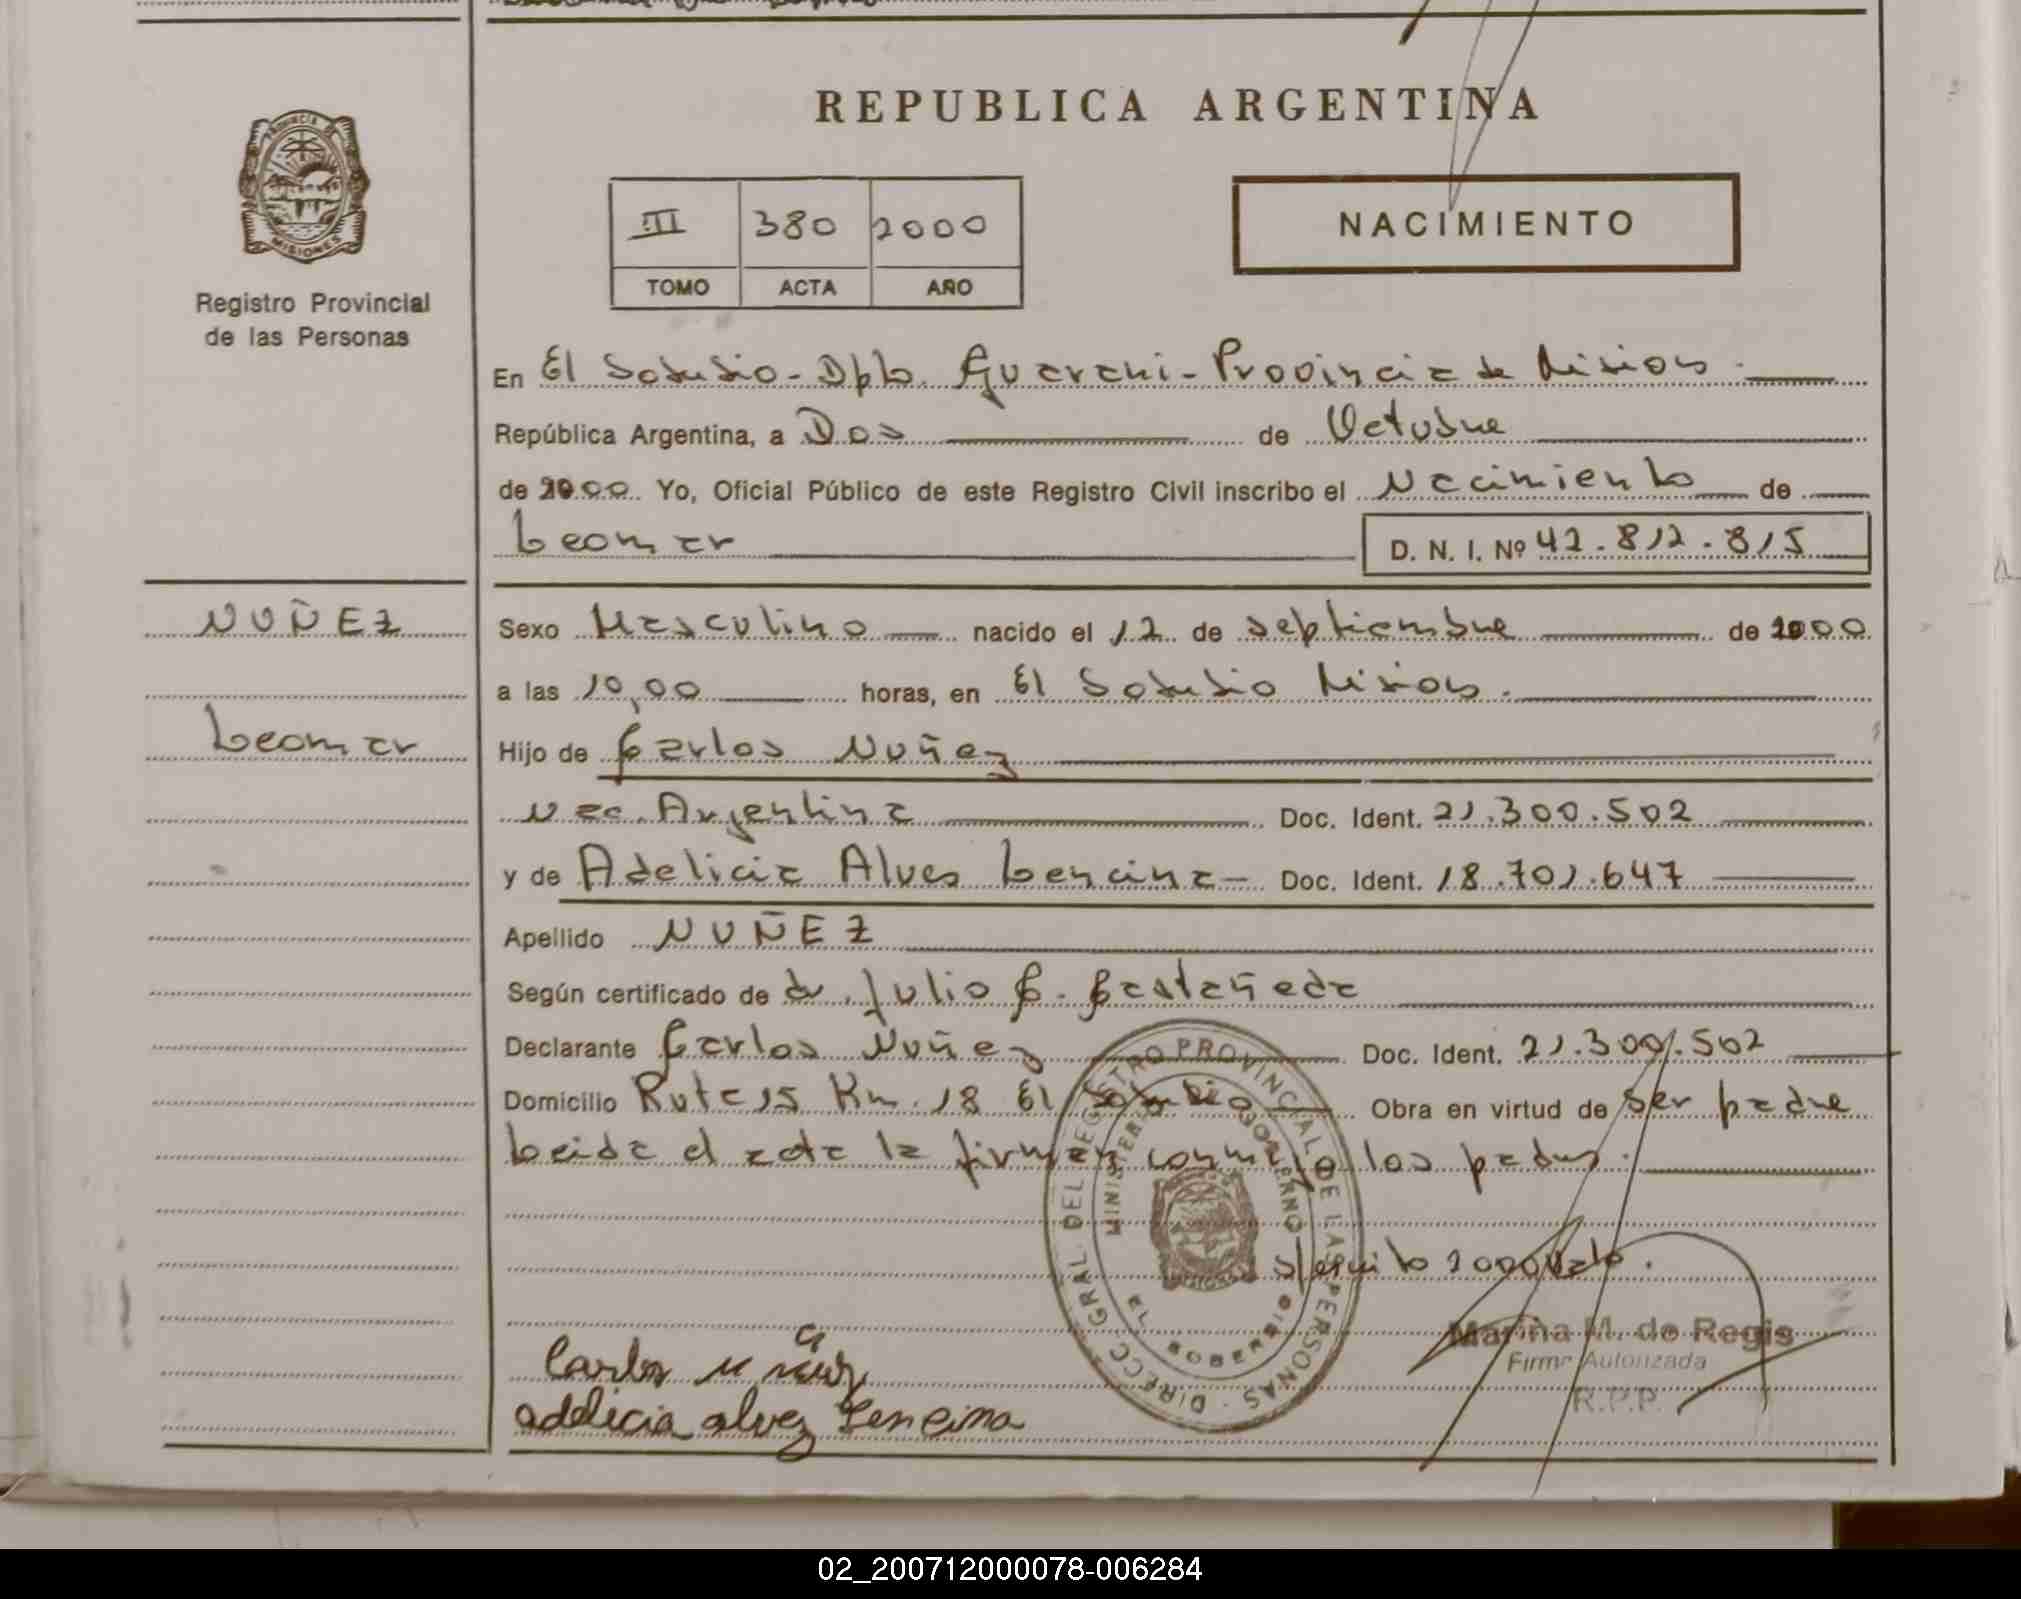 REPUBLICA ARGENTINA
PROVINCIA DE
MISIONES
Registro Provincial
de las Personas
III 380 2000
TOMO ACTA AÑO
NACIMIENTO
En El Soberbio - Dpto. Guarani - Provincia de Misiones.
República Argentina, a Dos de Octubre
de 2000 Yo, Oficial Público de este Registro Civil inscribo el Nacimiento de
Leomar D. N. I. Nº 42.812.815
NUÑEZ
Leomar
Sexo Masculino nacido el 12 de septiembre de 2000
a las 10,00 horas, en El Soberbio Misiones.
Hijo de Carlos Nuñez
Nac. Argentina Doc. Ident. 21.300.502
y de Adelicia Alves Lencina - Doc. Ident. 18.701.647
Apellido NUÑEZ
Según certificado de Dr. Julio C. Castañeda
Declarante Carlos Nuñez Doc. Ident. 21.300.502
Domicilio Ruta 15 Km. 18 El Soberbio Obra en virtud de ser padre
Leida el acta la firman conmigo los padres.
2000 Vale.
Carlos Nuñez
adelicia alvez Lencina
DIRECC. GRAL. DEL REGISTRO PROVINCIAL DE LAS PERSONAS
MINISTERIO GOBIERNO
EL SOBERBIO
Marina M. de Regis
Firma Autorizada
R.P.P.
02_200712000078-006284